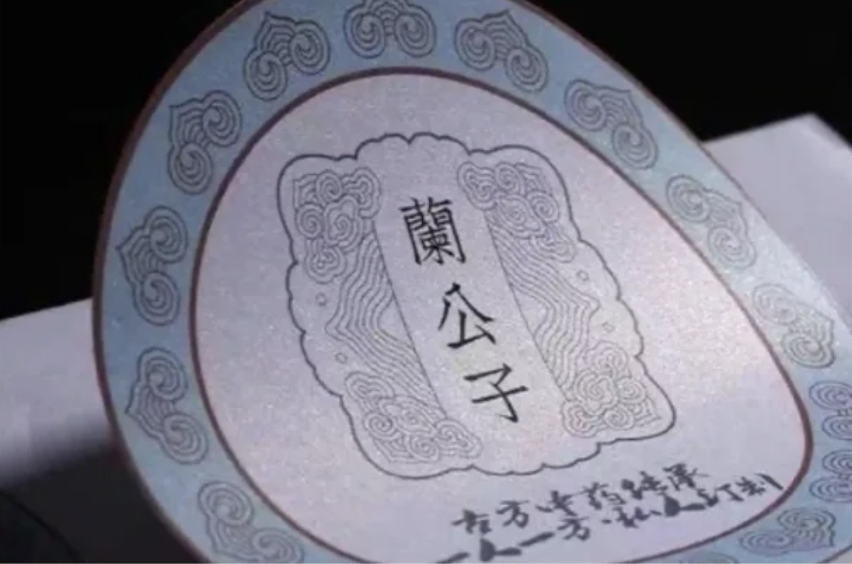 蘭公子
古方中药继承
一人一方·私人订制